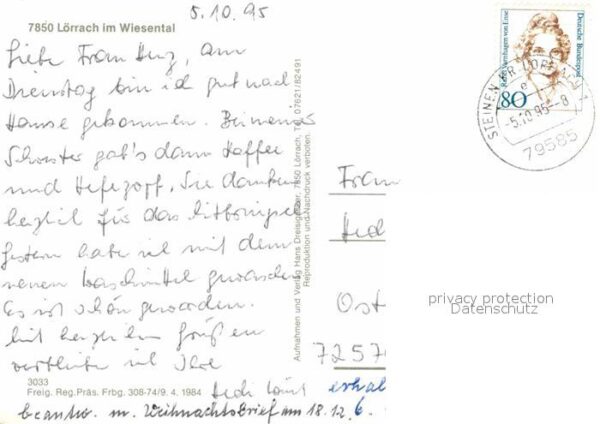 5.10.95
7850 Lörrach im Wiesental
Liebe Frau Herz, am
Dienstag bin ich gut nach
Hause gekommen. Bei meiner
Schwester gab's dann Kaffee
und Hefezopf. Sie danken
herzlich für das
Gestern habe ich mit dem
neuen Waschmittel gewaschen
Es ist schön geworden.
Mit herzlichen Grüßen
verbleibe ich Ihre
3033
Freig. Reg.Präs. Frbg. 308-74/9. 4. 1984
beantw. m. Weihnachtsbrief am 18.12.
Aufnahmen und Verlag Hans 7850 Lörrach, Tel. 07621/82491
Reproduktion und Nachdruck verboten.
Deutsche Bundespost
Rahel Varnhagen von Ense
80
-5.10.95-8
79585
Frau
Ost
7257
erhal
privacy protection
Datenschutz